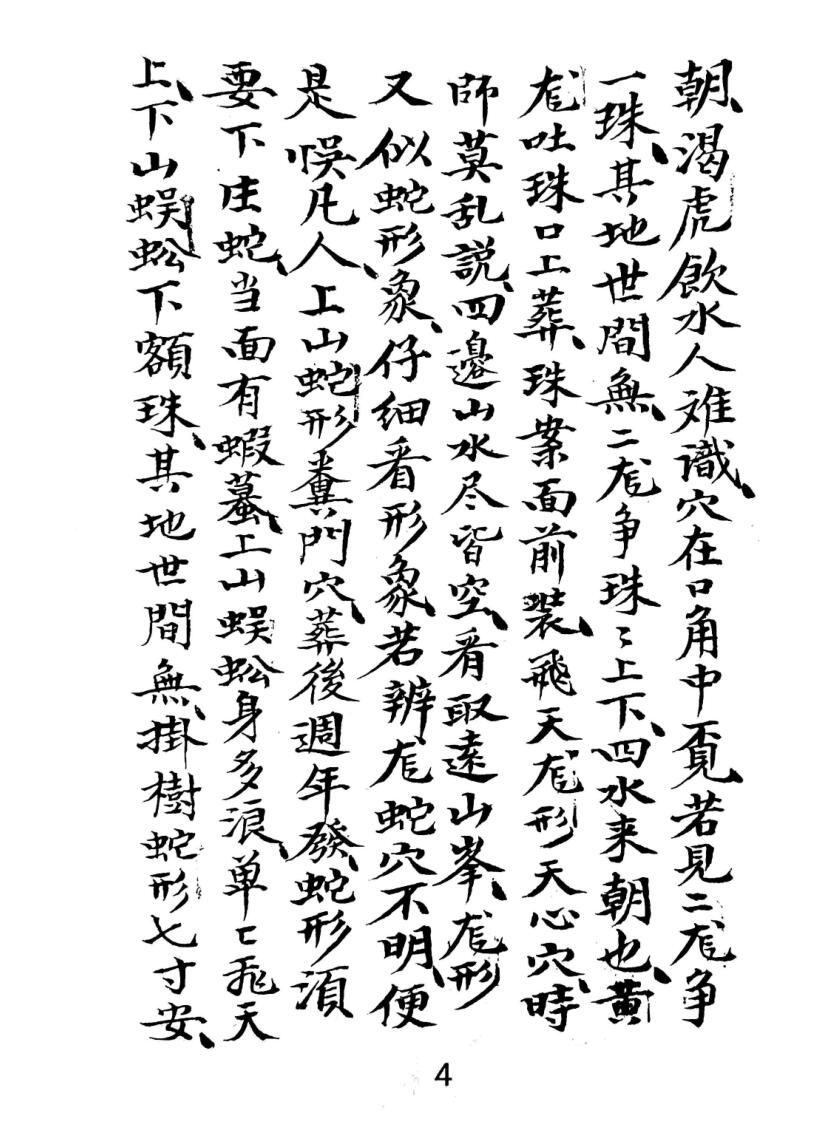 朝、渴虎飲水人难識、穴在口角中覔、若見二龙争
一珠、其地世間無、二龙争珠〻上下、四水来朝也、黄
龙吐珠口上葬、珠案面前裝、飛天龙形天心穴、時
師莫乱説、四邊山水尽皆空、看取遠山峯、龙形
又似蛇形象、仔細看形象、若辨龙蛇穴不明、便
是悮凡人、上山蛇形糞門穴、葬後週年發、蛇形須
要下庄蛇、当面有蝦蟇、上山蜈蚣身多浪、单匕飛天
上、下山蜈蚣下額珠、其地世間無、掛樹蛇形七寸安、
4